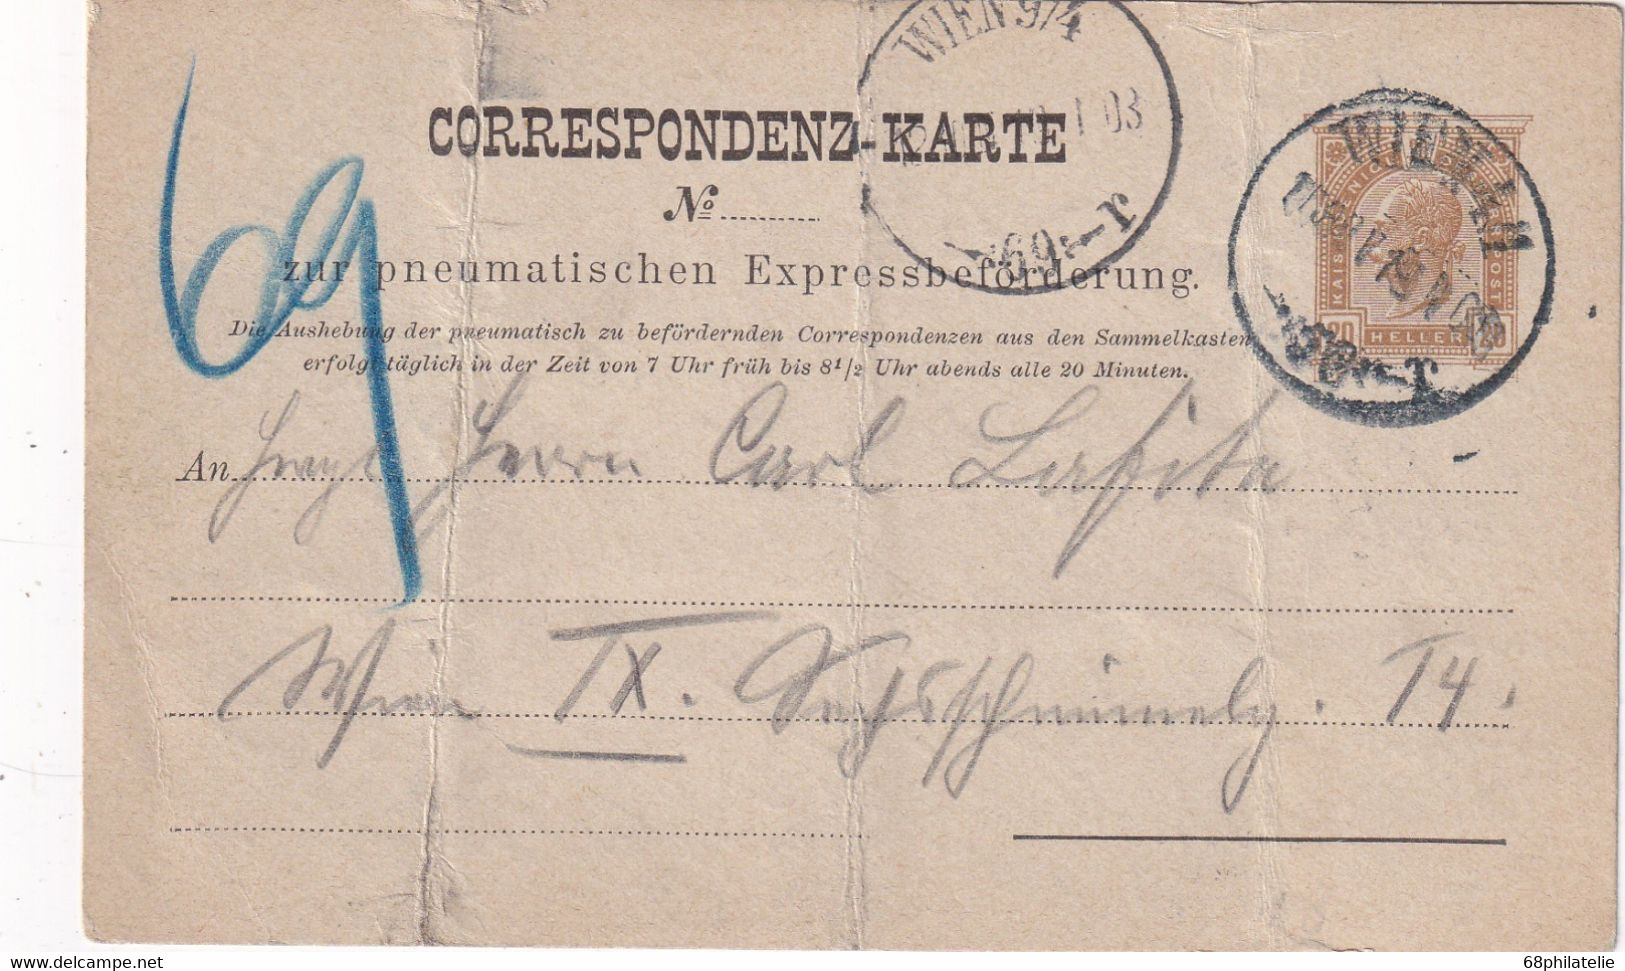 WIEN 9/4
1 03
CORRESPONDENZ-KARTE
No
*69*
r
KAIS
POST
20 HELLER 20
69
zur pneumatischen Expressbeförderung.
Die Aushebung der pneumatisch zu befördernden Correspondenzen aus den Sammelkasten
erfolgt täglich in der Zeit von 7 Uhr früh bis 8 1/2 Uhr abends alle 20 Minuten.
An Herrn Carl Lafite
Wien IX. 14.
www.delcampe.net
68philatelie